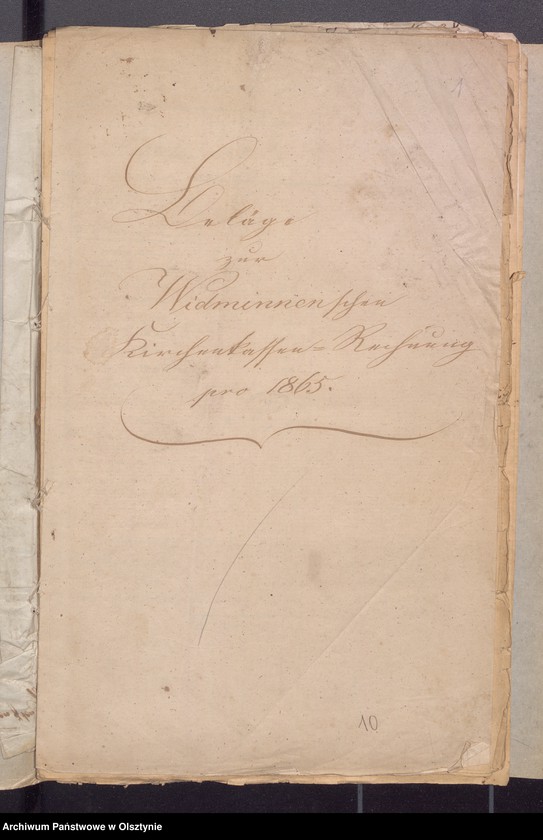 1
Beläge
zur
Widminnenschen
Kirchenkassen=Rechnung
pro 1865.
10
Archiwum Państwowe w Olsztynie